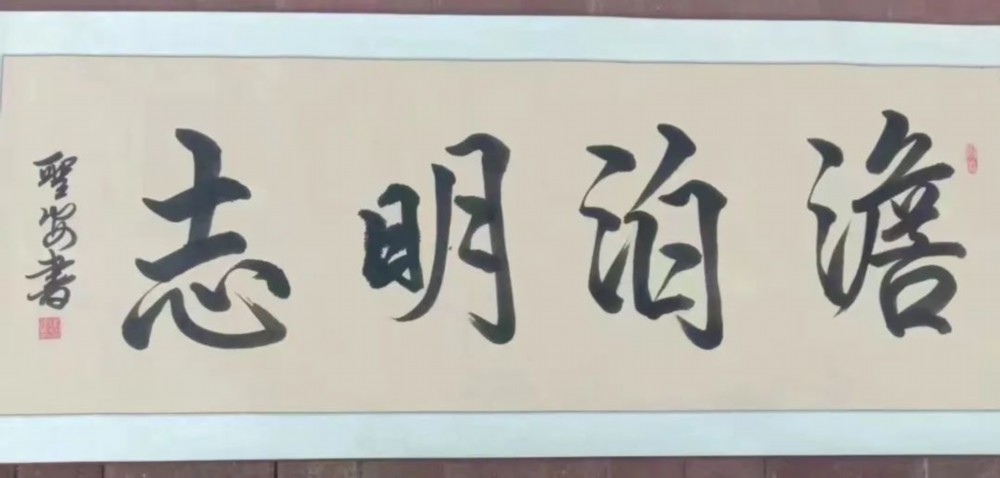 澹泊明志
聖安書